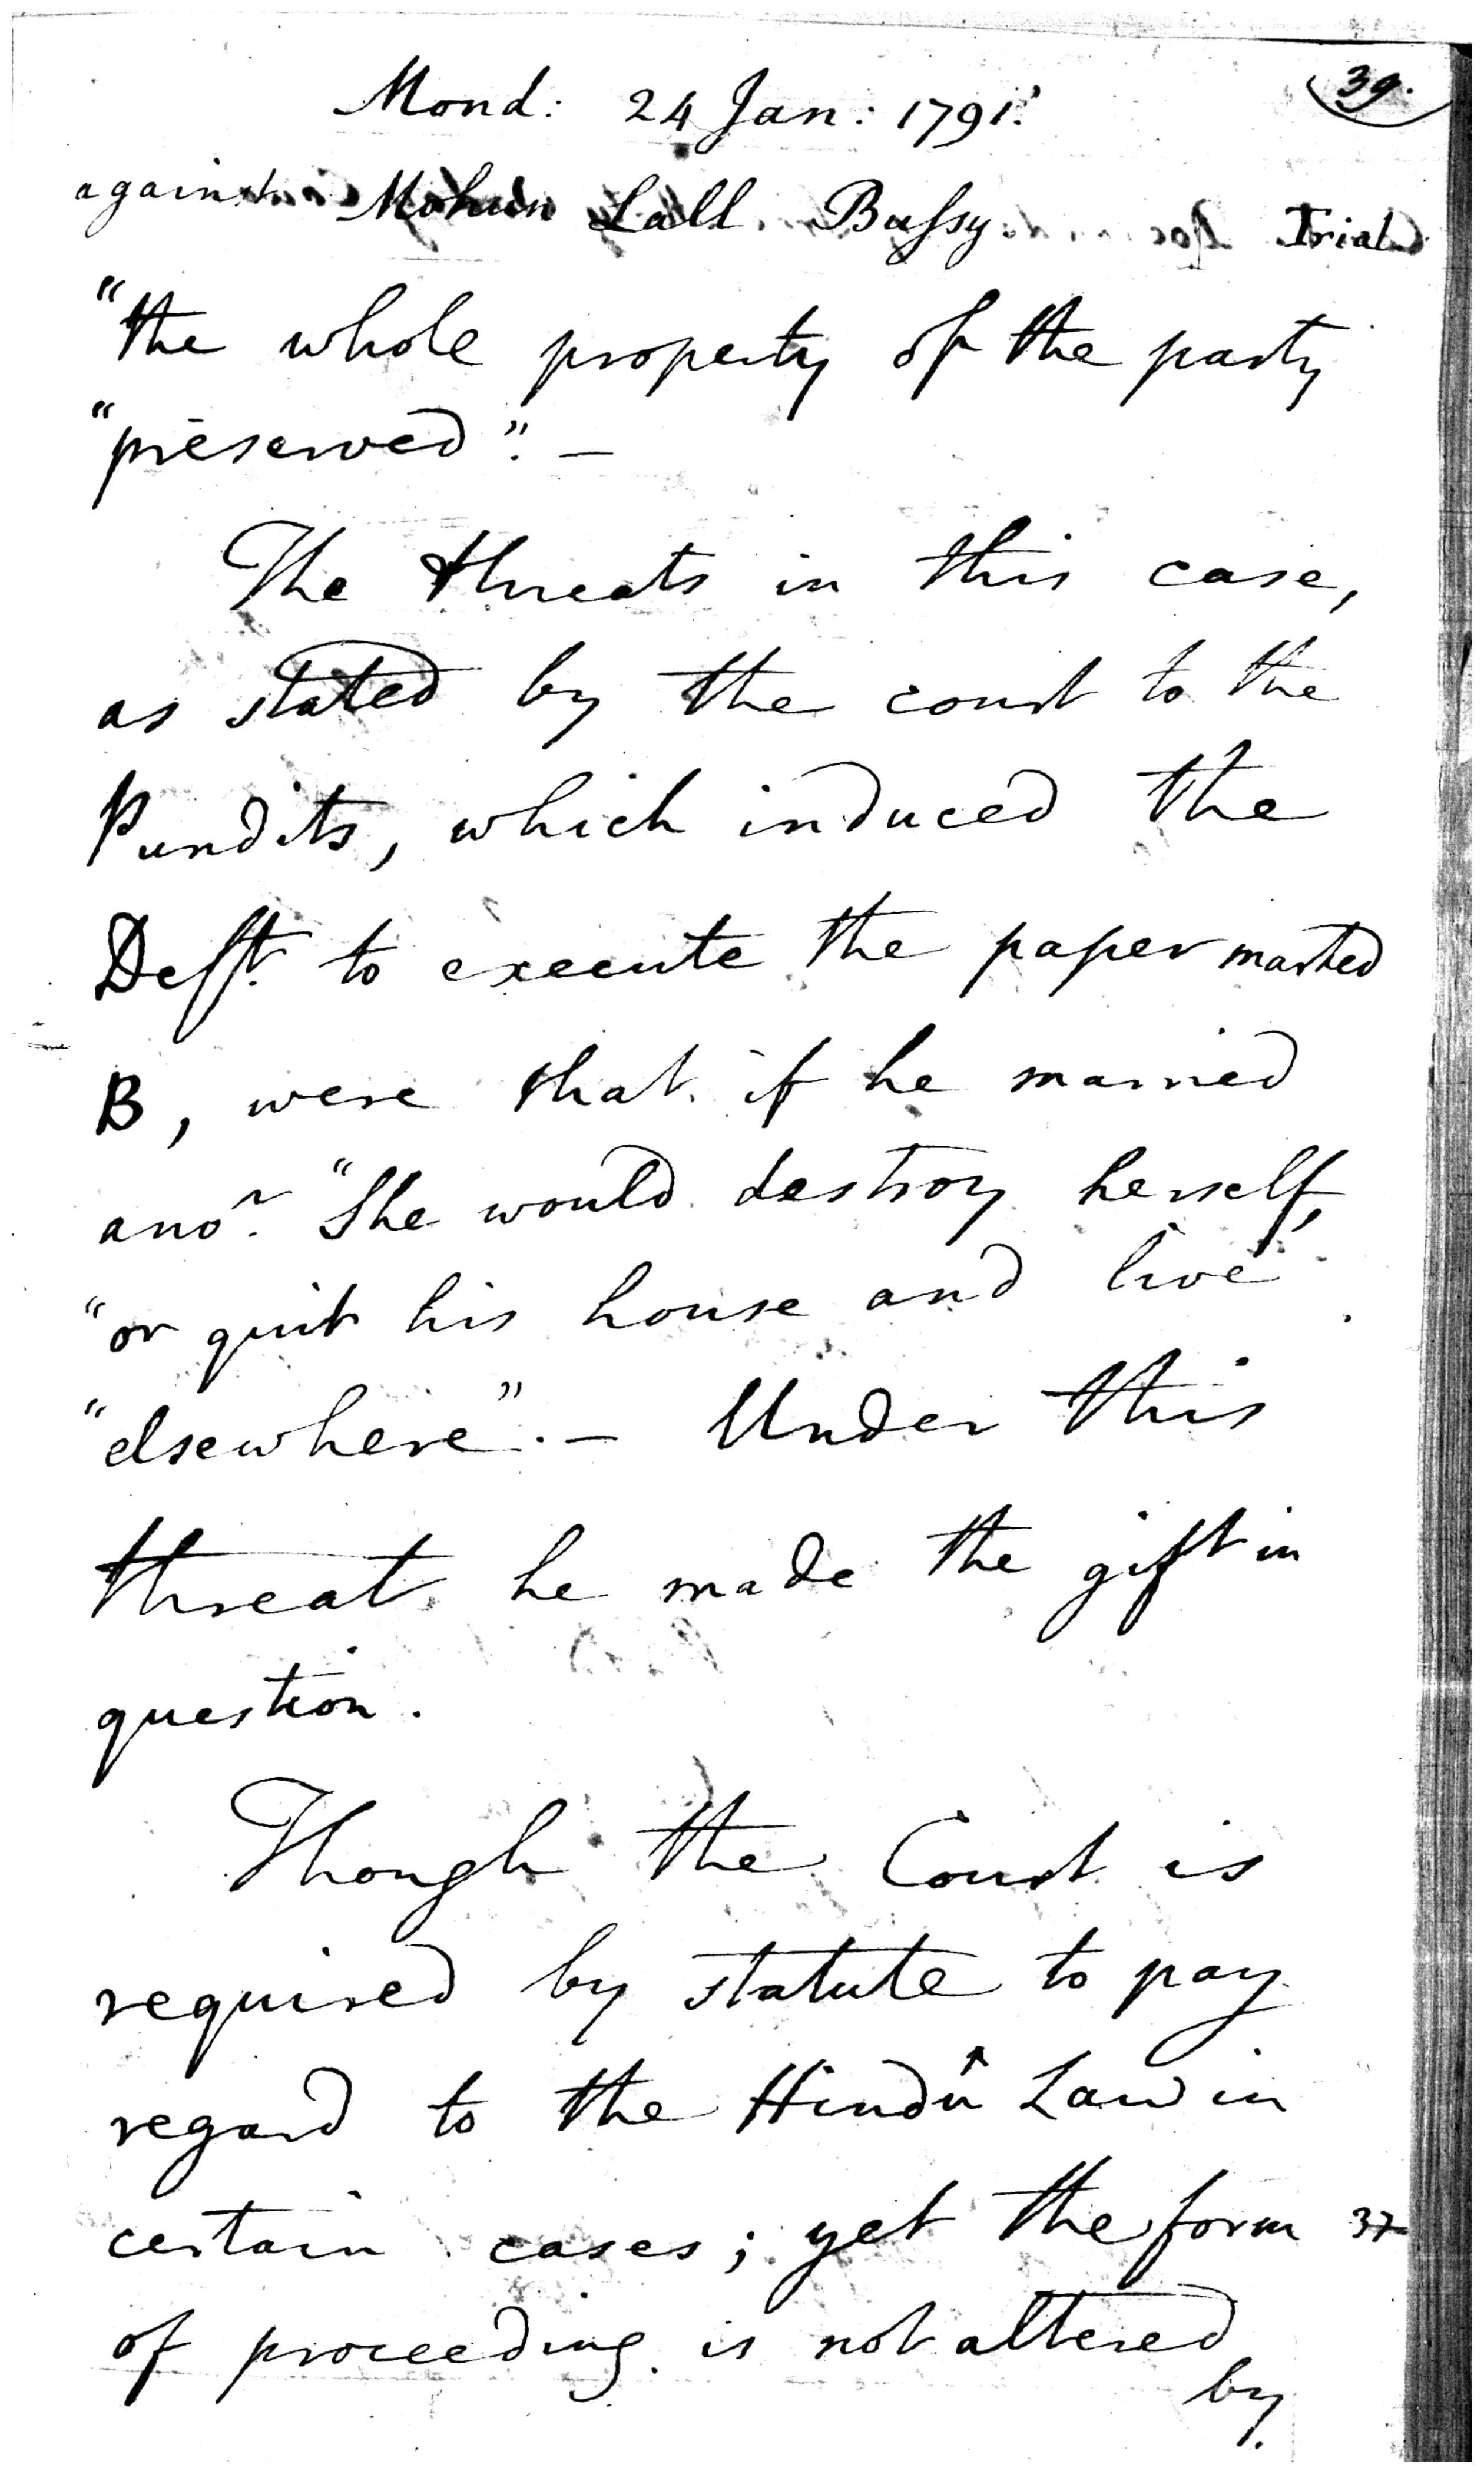 39.
Mond: 24 Jan: 1791.
against Mohun Lall Bassy. Trial
"the whole property of the party
"preserved". —
The threats in this case,
as stated by the court to the
Pundits, which induced the
Deft. to execute the paper marked
B, were that if he married
anor. "She would destroy herself,
"or quit his house and live
"elsewhere". — Under this
threat he made the gift in
question.
Though the Court is
required by statute to pay
regard to the Hindû Law in
certain cases; yet the form 37
of proceeding is not altered
by